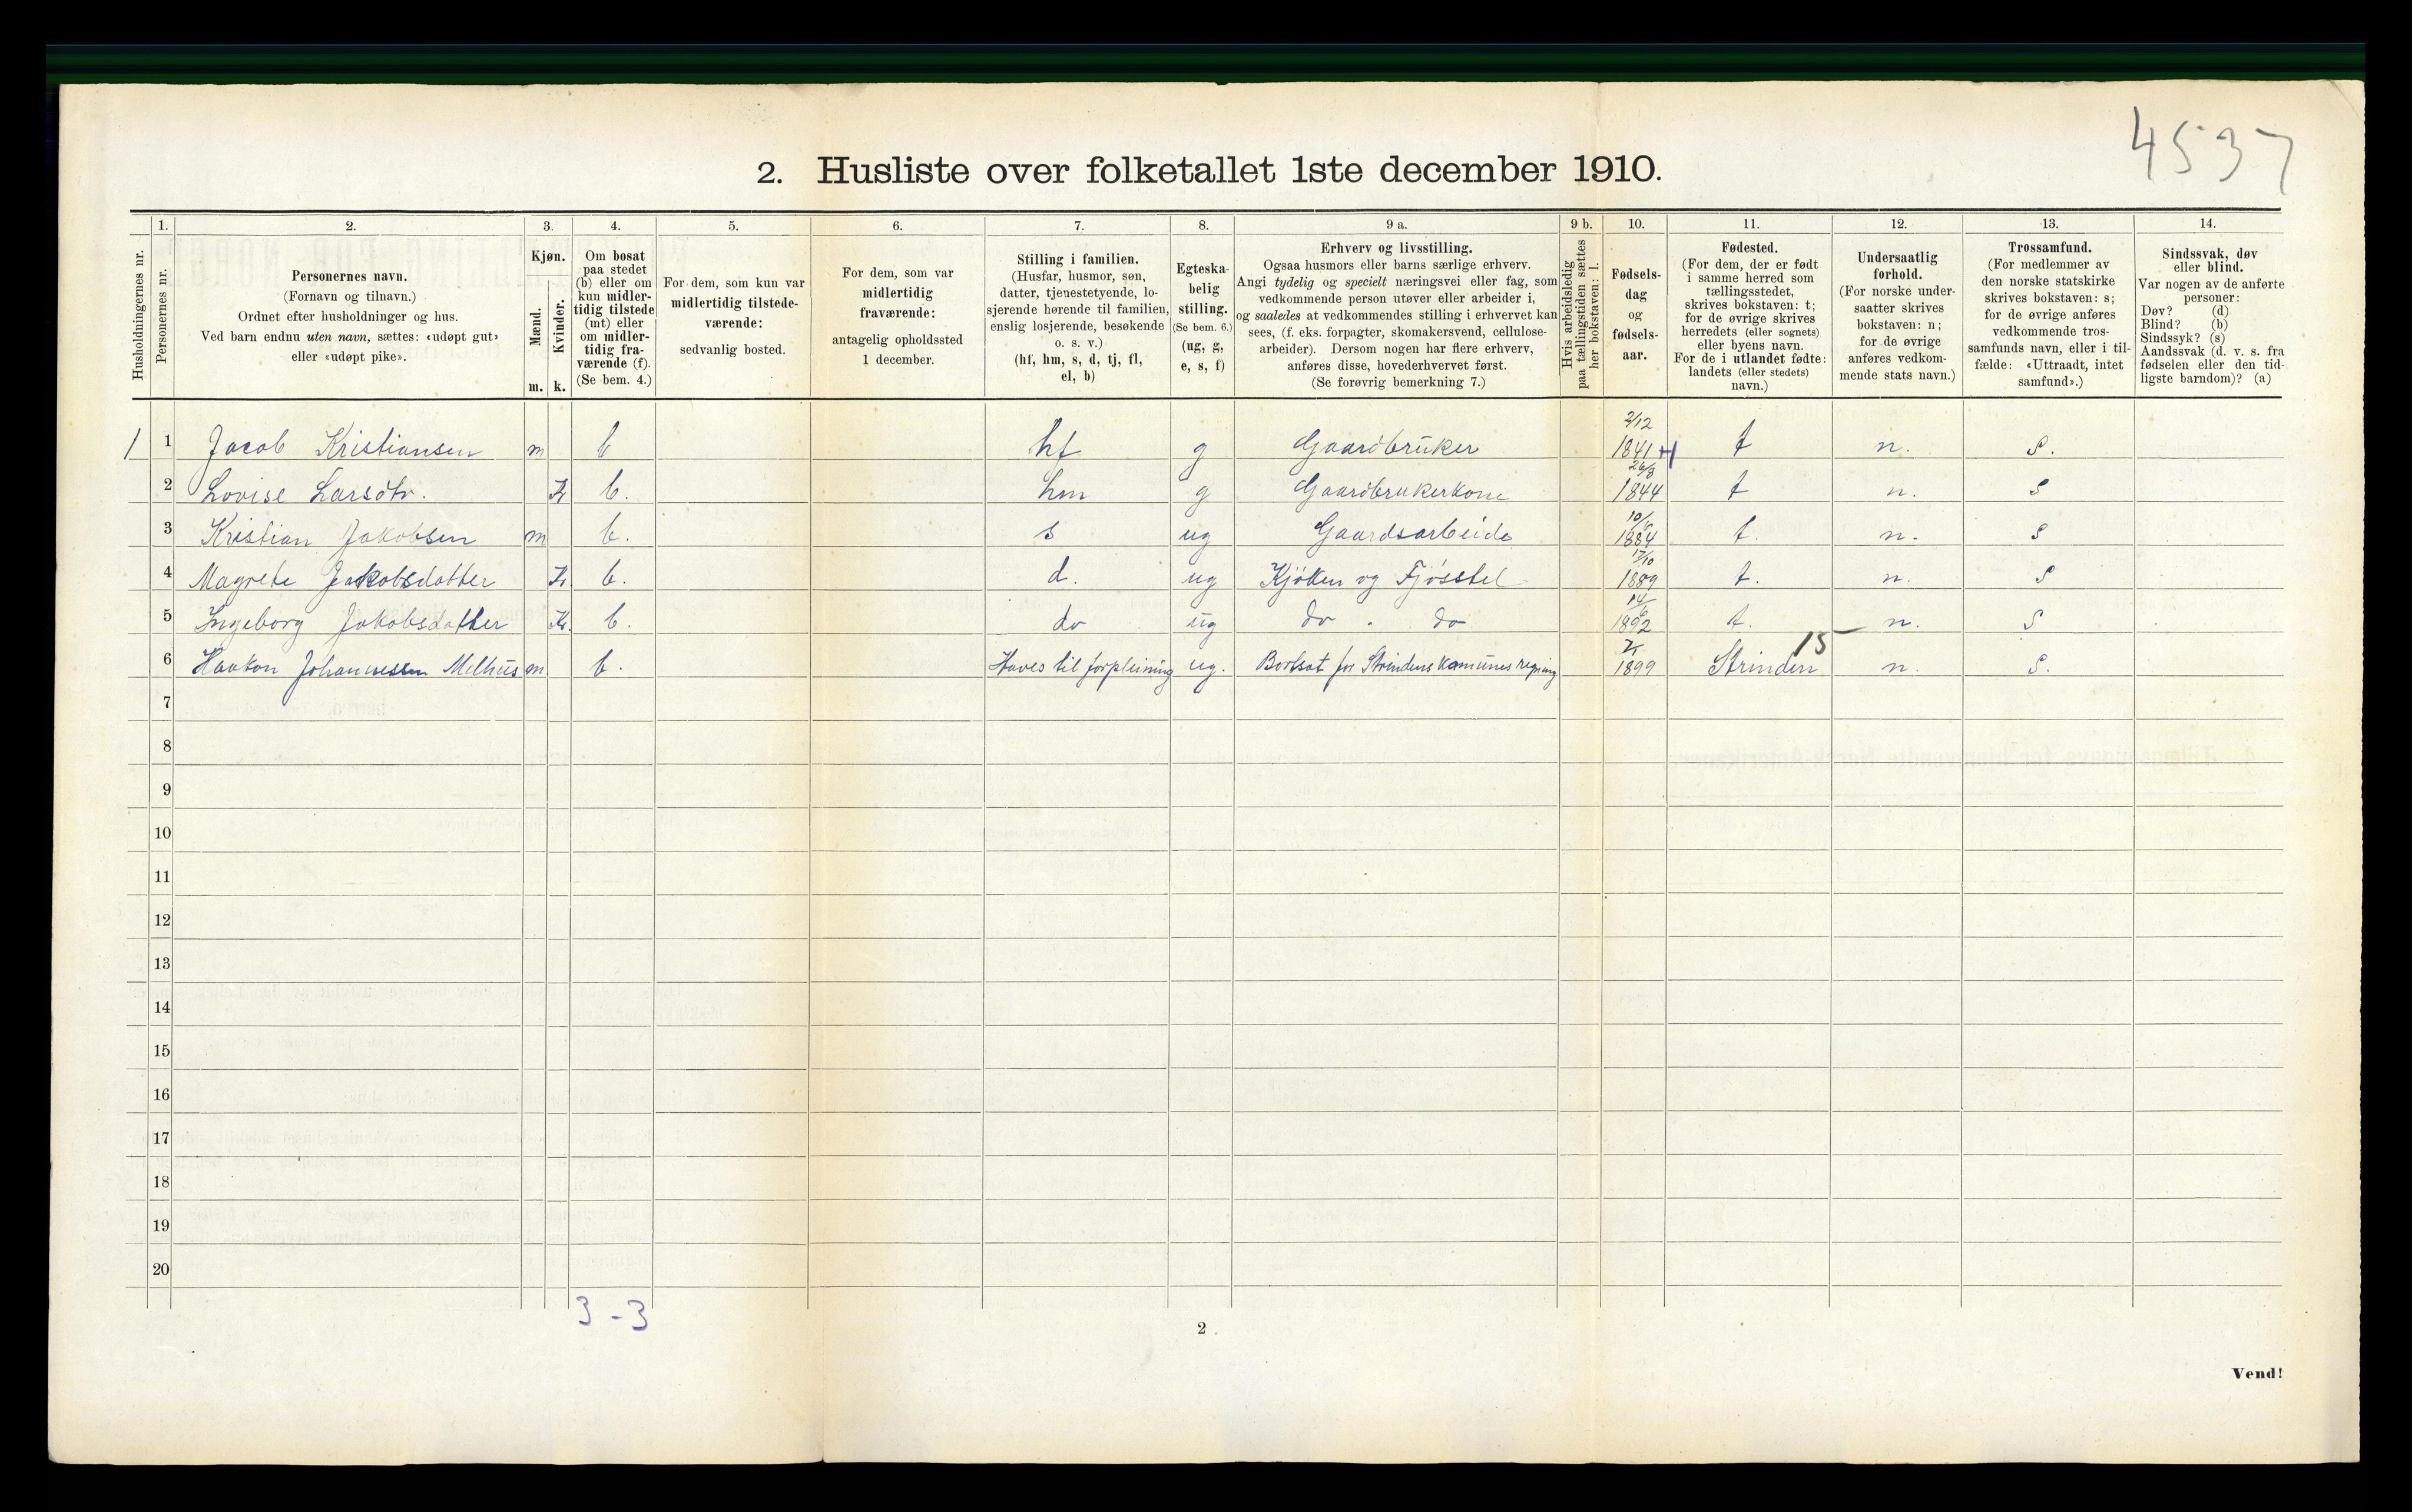 4537
2. Husliste over folketallet 1ste december 1910.
Husholdningernes nr.
1.
Personernes nr.
2.
Personernes navn.
(Fornavn og tilnavn.)
Ordnet efter husholdninger og hus.
Ved barn endnu uten navn, sættes: «udøpt gut»
eller «udøpt pike».
3.
Kjøn.
Mænd.
Kvinder.
m. k.
4.
Om bosat
paa stedet
(b) eller om
kun midler-
tidig tilstede
(mt) eller
om midler-
tidig fra-
værende (f).
(Se bem. 4.)
5.
For dem, som kun var
midlertidig tilstede-
værende:
sedvanlig bosted.
6.
For dem, som var
midlertidig
fraværende:
antagelig opholdssted
1 december.
7.
Stilling i familien.
(Husfar, husmor, søn,
datter, tjenestetyende, lo-
sjerende hørende til familien,
enslig losjerende, besøkende
o. s. v.)
(hf, hm, s, d, tj, fl,
el, b)
8.
Egteska-
belig
stilling.
(Se bem. 6.)
(ug, g,
e, s, f)
9 a.
Erhverv og livsstilling.
Ogsaa husmors eller barns særlige erhverv.
Angi tydelig og specielt næringsvei eller fag, som
vedkommende person utøver eller arbeider i,
og saaledes at vedkommendes stilling i erhvervet kan
sees, (f. eks. forpagter, skomakersvend, cellulose-
arbeider). Dersom nogen har flere erhverv,
anføres disse, hovederhvervet først.
(Se forøvrig bemerkning 7.)
9 b.
Hvis arbeidsledig
paa tællingstiden sættes
her bokstaven: l.
10.
Fødsels-
dag
og
fødsels-
aar.
11.
Fødested.
(For dem, der er født
i samme herred som
tællingsstedet,
skrives bokstaven: t;
for de øvrige skrives
herredets (eller sognets)
eller byens navn.
For de i utlandet fødte:
landets (eller stedets)
navn.)
12.
Undersaatlig
forhold.
(For norske under-
saatter skrives
bokstaven: n;
for de øvrige
anføres vedkom-
mende stats navn.)
13.
Trossamfund.
(For medlemmer av
den norske statskirke
skrives bokstaven: s;
for de øvrige anføres
vedkommende tros-
samfunds navn, eller i til-
fælde: «Uttraadt, intet
samfund».)
14.
Sindssvak, døv
eller blind.
Var nogen av de anførte
personer:
Døv? (d)
Blind? (b)
Sindssyk? (s)
Aandssvak (d. v. s. fra
fødselen eller den tid-
ligste barndom)? (a)
1 1 Jacob Kristiansen m b hf g Gaardbruker 2/12 1841 t n. s.
2 Lovise Larsdtr. K b. hm g Gaardbrukerkone 26/8 1844 t n. s
3 Kristian Jakobsen m b. s ug Gaardsarbeide 10/6 1884 t. n. s
4 Magrete Jakobsdatter K b. d. ug Kjøken og Fjøsstel 17/10 1889 t. n. s
5 Ingeborg Jakobsdatter K. b. do ug do . do 14/6 1892 t. n. s
6 Haakon Johannessen Melhus m b. Haves til forpleining ug. Bortsat for Strindens Komunes regning 1899 Strinden 15 n. s.
7
8
9
10
11
12
13
14
15
16
17
18
19
20
3 - 3
2
Vend!